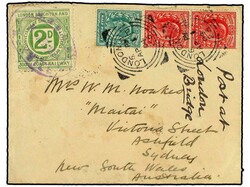 LONDON BRIGHTON AND
2D
RAILWAY
LONDON
LONDON
Post at
London
Bridge
Mrs W. M. Noakes
"Maitai"
Victoria Street
Ashfield
Sydney
New South Wales
Australia.